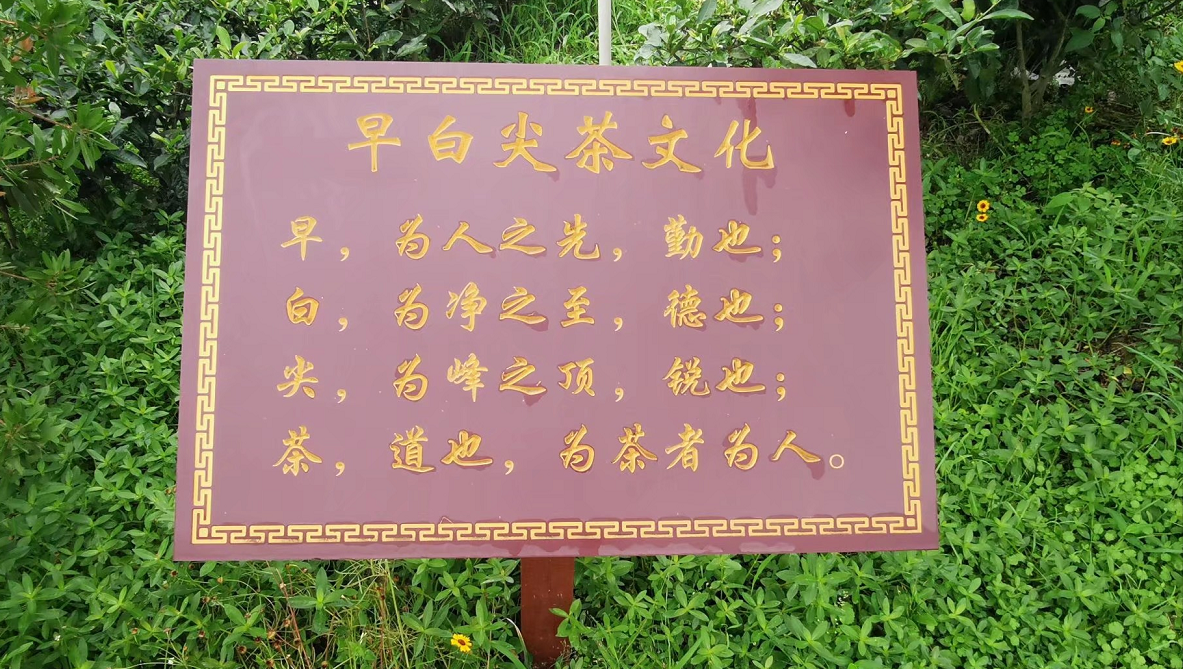 早白尖茶文化
早，为人之先，勤也；
白，为净之至，德也；
尖，为峰之顶，锐也；
茶，道也，为茶者为人。